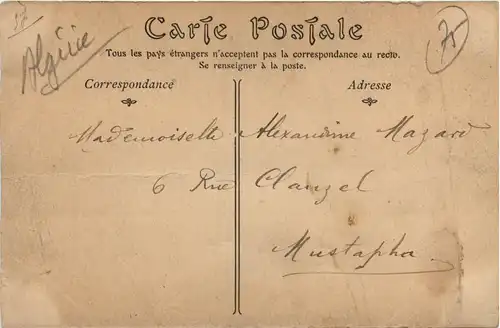 Carte Postale
Tous les pays étrangers n'acceptent pas la correspondance au recto.
Se renseigner à la poste.
Algérie
75
Correspondance
Adresse
Mademoiselle Alexandrine Mazard
6 Rue Clauzel
Mustapha